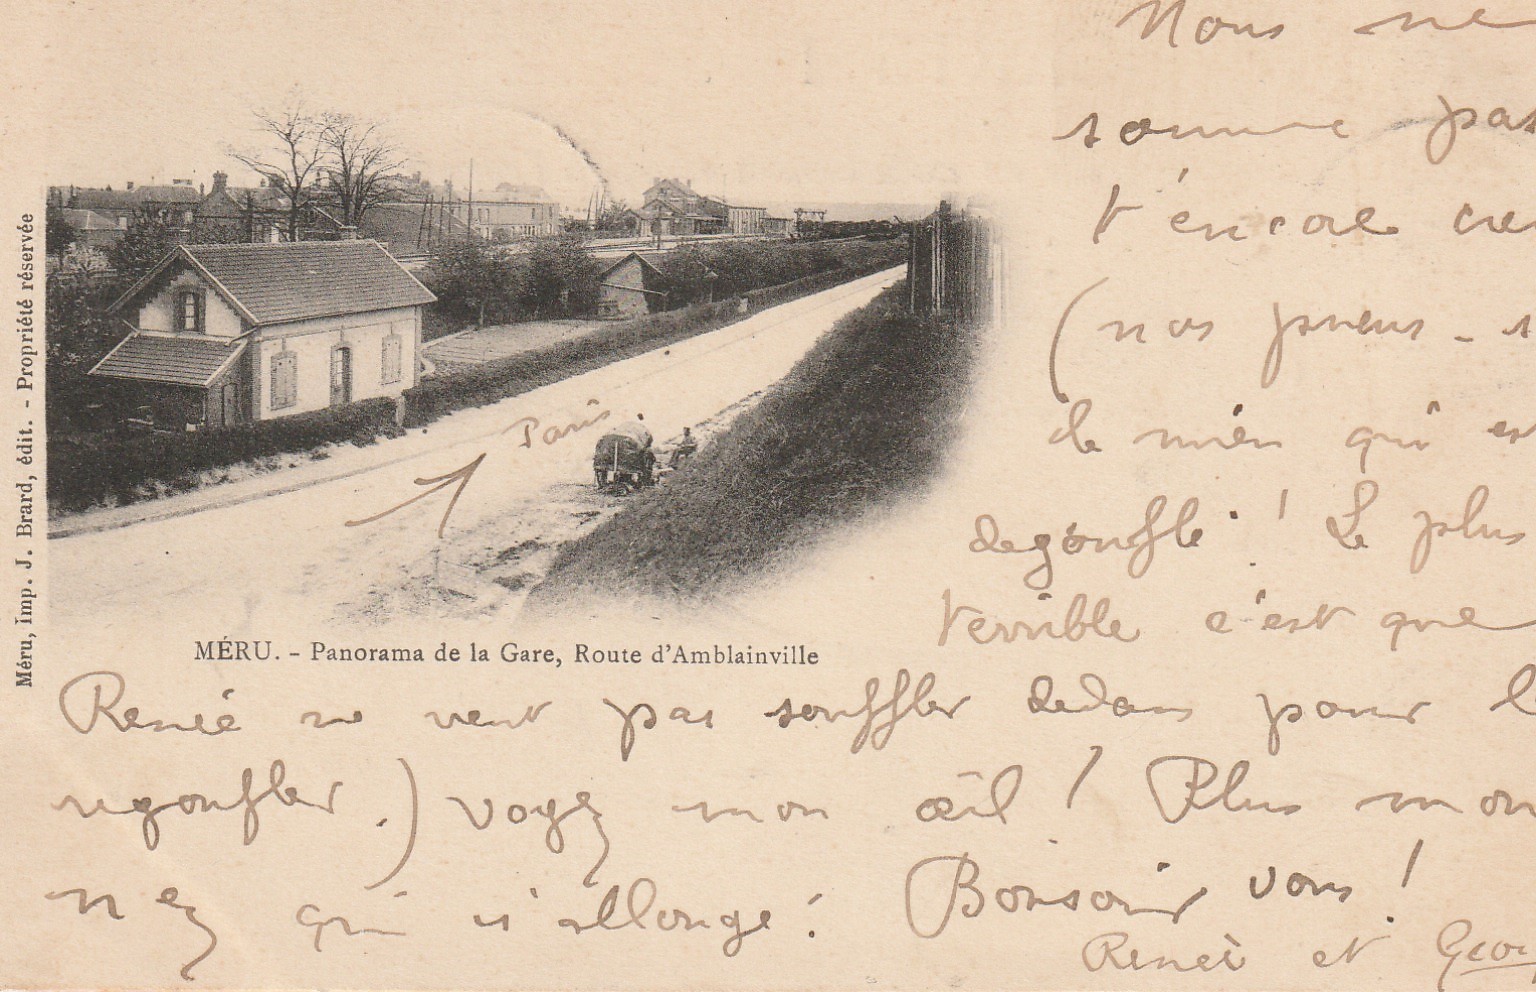 Nous ne
somme pas
t'encore cre
(nos pneus - s
de mien qui est
degonfle ! Le plus
terrible c'est que
Paris
Méru, imp. J. Brard, édit. - Propriété réservée
MÉRU. - Panorama de la Gare, Route d'Amblainville
Renée ne veut pas souffler dedans pour l
regonfler.) voyez mon œil ! Plus mon
nez qui s'allonge ! Bonsoir vous !
Renée et Geor